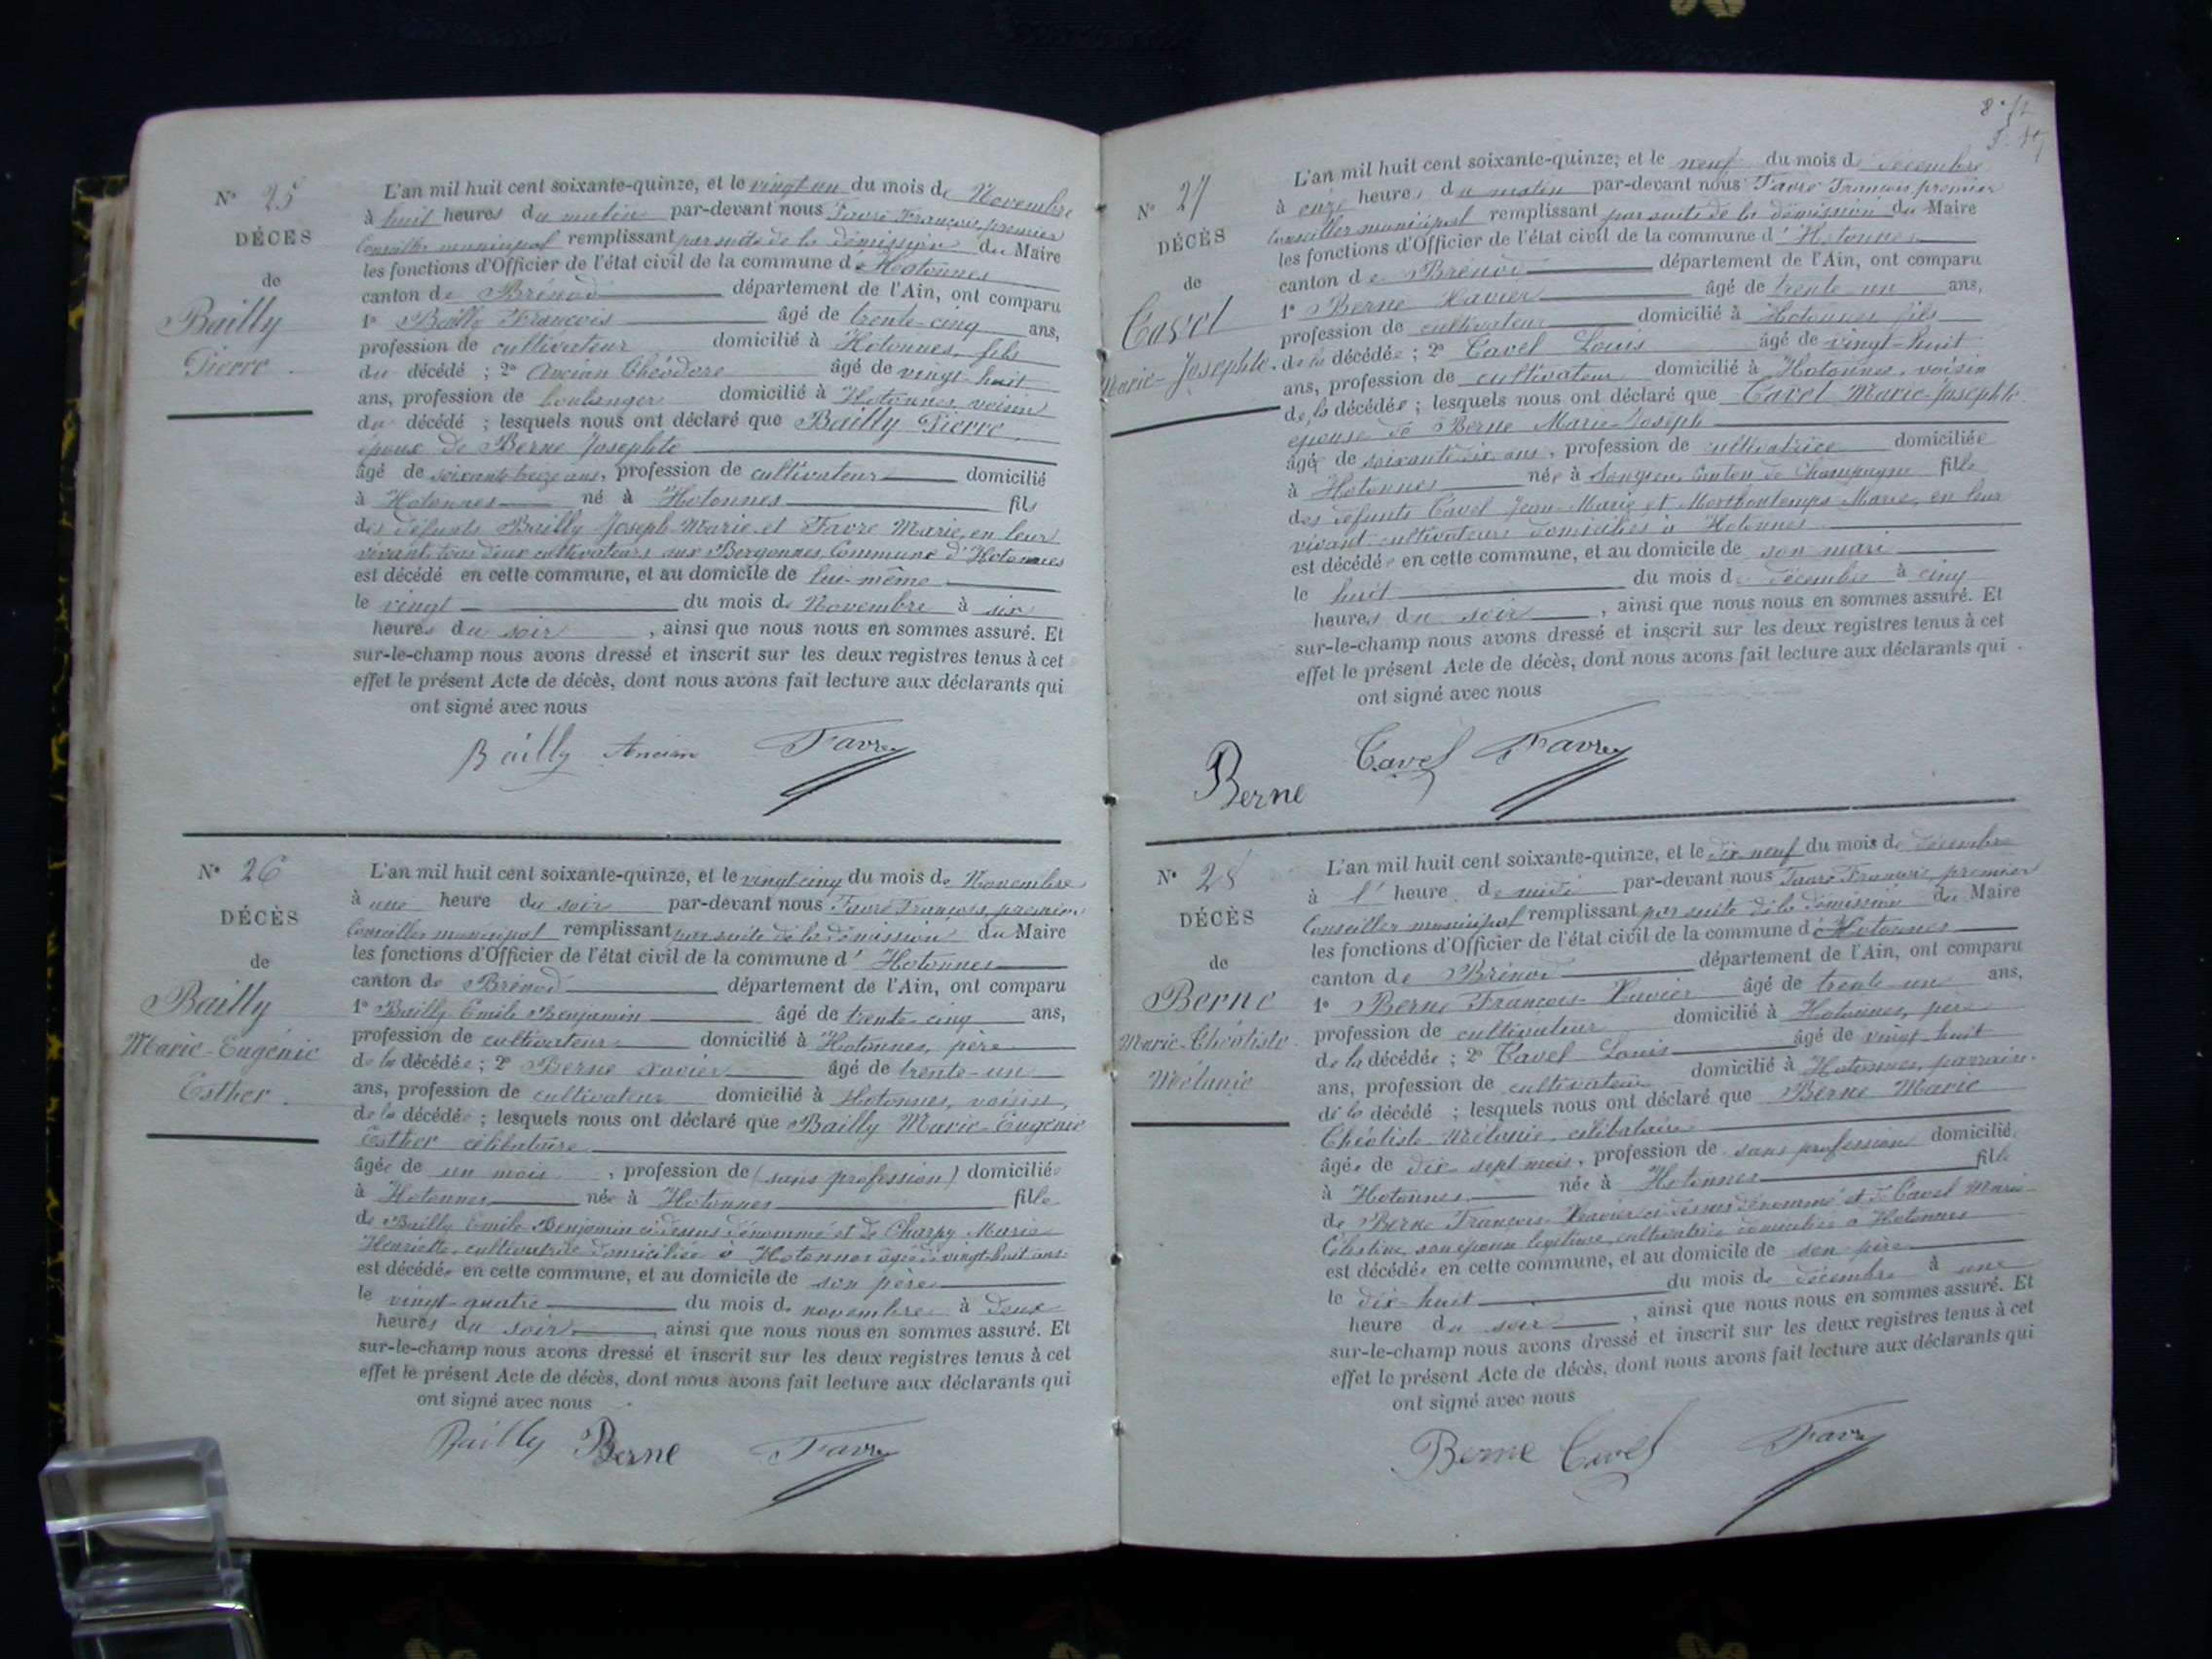 N° 25
DÉCÈS
de
Bailly
Pierre
L'an mil huit cent soixante-quinze, et le vingt un du mois de Novembre
à huit heures du matin par-devant nous Favre François, premier
Conseiller municipal remplissant par suite de la démission du Maire
les fonctions d'Officier de l'état civil de la commune d'Hotonnes
canton de Brénod département de l'Ain, ont comparu
1° Bailly François âgé de trente-cinq ans,
profession de cultivateur domicilié à Hotonnes, fils
du décédé ; 2° Ancian Théodore âgé de vingt-huit
ans, profession de boulanger domicilié à Hotonnes, voisin
du décédé ; lesquels nous ont déclaré que Bailly Pierre,
époux de Berne Josephte
âgé de soixante-treize ans, profession de cultivateur domicilié
à Hotonnes né à Hotonnes fils
des défunts Bailly Joseph-Marie et Favre Marie, en leur
vivant tous deux cultivateurs aux Bergonnes, Commune d'Hotonnes
est décédé en cette commune, et au domicile de lui-même
le vingt du mois de Novembre à six
heures du soir, ainsi que nous nous en sommes assuré. Et
sur-le-champ nous avons dressé et inscrit sur les deux registres tenus à cet
effet le présent Acte de décès, dont nous avons fait lecture aux déclarants qui
ont signé avec nous
Bailly Ancian Favre
N° 26
DÉCÈS
de
Bailly
Marie-Eugénie
Esther.
L'an mil huit cent soixante-quinze, et le vingt-cinq du mois de Novembre
à une heure du soir par-devant nous Favre François, premier
Conseiller municipal remplissant par suite de la démission du Maire
les fonctions d'Officier de l'état civil de la commune d'Hotonnes
canton de Brénod département de l'Ain, ont comparu
1° Bailly Emile Benjamin âgé de trente-cinq ans,
profession de cultivateur domicilié à Hotonnes, père
de la décédée ; 2° Berne Xavier âgé de trente-un
ans, profession de cultivateur domicilié à Hotonnes, voisin,
de la décédée ; lesquels nous ont déclaré que Bailly Marie-Eugénie
Esther célibataire
âgée de un mois, profession de (sans profession) domiciliée
à Hotonnes née à Hotonnes fille
de Bailly Emile-Benjamin ci-dessus dénommé et de Charpy Marie
Henriette, cultivatrice domiciliée à Hotonnes âgée de vingt-huit ans
est décédée en cette commune, et au domicile de son père
le vingt-quatre du mois de novembre à deux
heures du soir, ainsi que nous nous en sommes assuré. Et
sur-le-champ nous avons dressé et inscrit sur les deux registres tenus à cet
effet le présent Acte de décès, dont nous avons fait lecture aux déclarants qui
ont signé avec nous
Bailly Berne Favre
N° 27
DÉCÈS
de
Cavel
Marie-Josephte.
L'an mil huit cent soixante-quinze, et le neuf du mois de décembre
à onze heures du matin par-devant nous Favre François premier
Conseiller municipal remplissant par suite de la démission du Maire
les fonctions d'Officier de l'état civil de la commune d'Hotonnes
canton de Brénod département de l'Ain, ont comparu
1° Berne Xavier âgé de trente un ans,
profession de cultivateur domicilié à Hotonnes fils
de la décédée ; 2° Cavel Louis âgé de vingt-huit
ans, profession de cultivateur domicilié à Hotonnes, voisin
de la décédée ; lesquels nous ont déclaré que Cavel Marie-Josephte
épouse de Berne Marie Joseph
âgée de soixante-dix ans, profession de cultivatrice domiciliée
à Hotonnes née à Songieu Canton de Champagne fille
des défunts Cavel Jean-Marie et Marie, en leur
vivant cultivateurs domiciliés à Hotonnes
est décédée en cette commune, et au domicile de son mari
le huit du mois de décembre à cinq
heures du soir, ainsi que nous nous en sommes assuré. Et
sur-le-champ nous avons dressé et inscrit sur les deux registres tenus à cet
effet le présent Acte de décès, dont nous avons fait lecture aux déclarants qui
ont signé avec nous
Berne Cavel Favre
N° 28
DÉCÈS
de
Berne
Marie-Théotiste
Mélanie
L'an mil huit cent soixante-quinze, et le dix neuf du mois de décembre
à l' heure de midi par-devant nous Favre François, premier
Conseiller municipal remplissant par suite de la démission du Maire
les fonctions d'Officier de l'état civil de la commune d'Hotonnes
canton de Brénod département de l'Ain, ont comparu
1° Berne François-Xavier âgé de trente un ans,
profession de cultivateur domicilié à Hotonnes, père
de la décédée ; 2° Cavel Louis âgé de vingt-huit
ans, profession de cultivateur domicilié à Hotonnes, parrain
de la décédé ; lesquels nous ont déclaré que Berne Marie
Théotiste Mélanie, célibataire
âgée de dix-sept mois, profession de sans profession domicilié
à Hotonnes née à Hotonnes fille
de Berne François-Xavier ci-dessus dénommé et de Cavel Marie
Célestine, son épouse légitime, cultivatrice domiciliée à Hotonnes
est décédée en cette commune, et au domicile de son père
le dix-huit du mois de décembre à une
heure du soir, ainsi que nous nous en sommes assuré. Et
sur-le-champ nous avons dressé et inscrit sur les deux registres tenus à cet
effet le présent Acte de décès, dont nous avons fait lecture aux déclarants qui
ont signé avec nous
Berne Cavel Favre